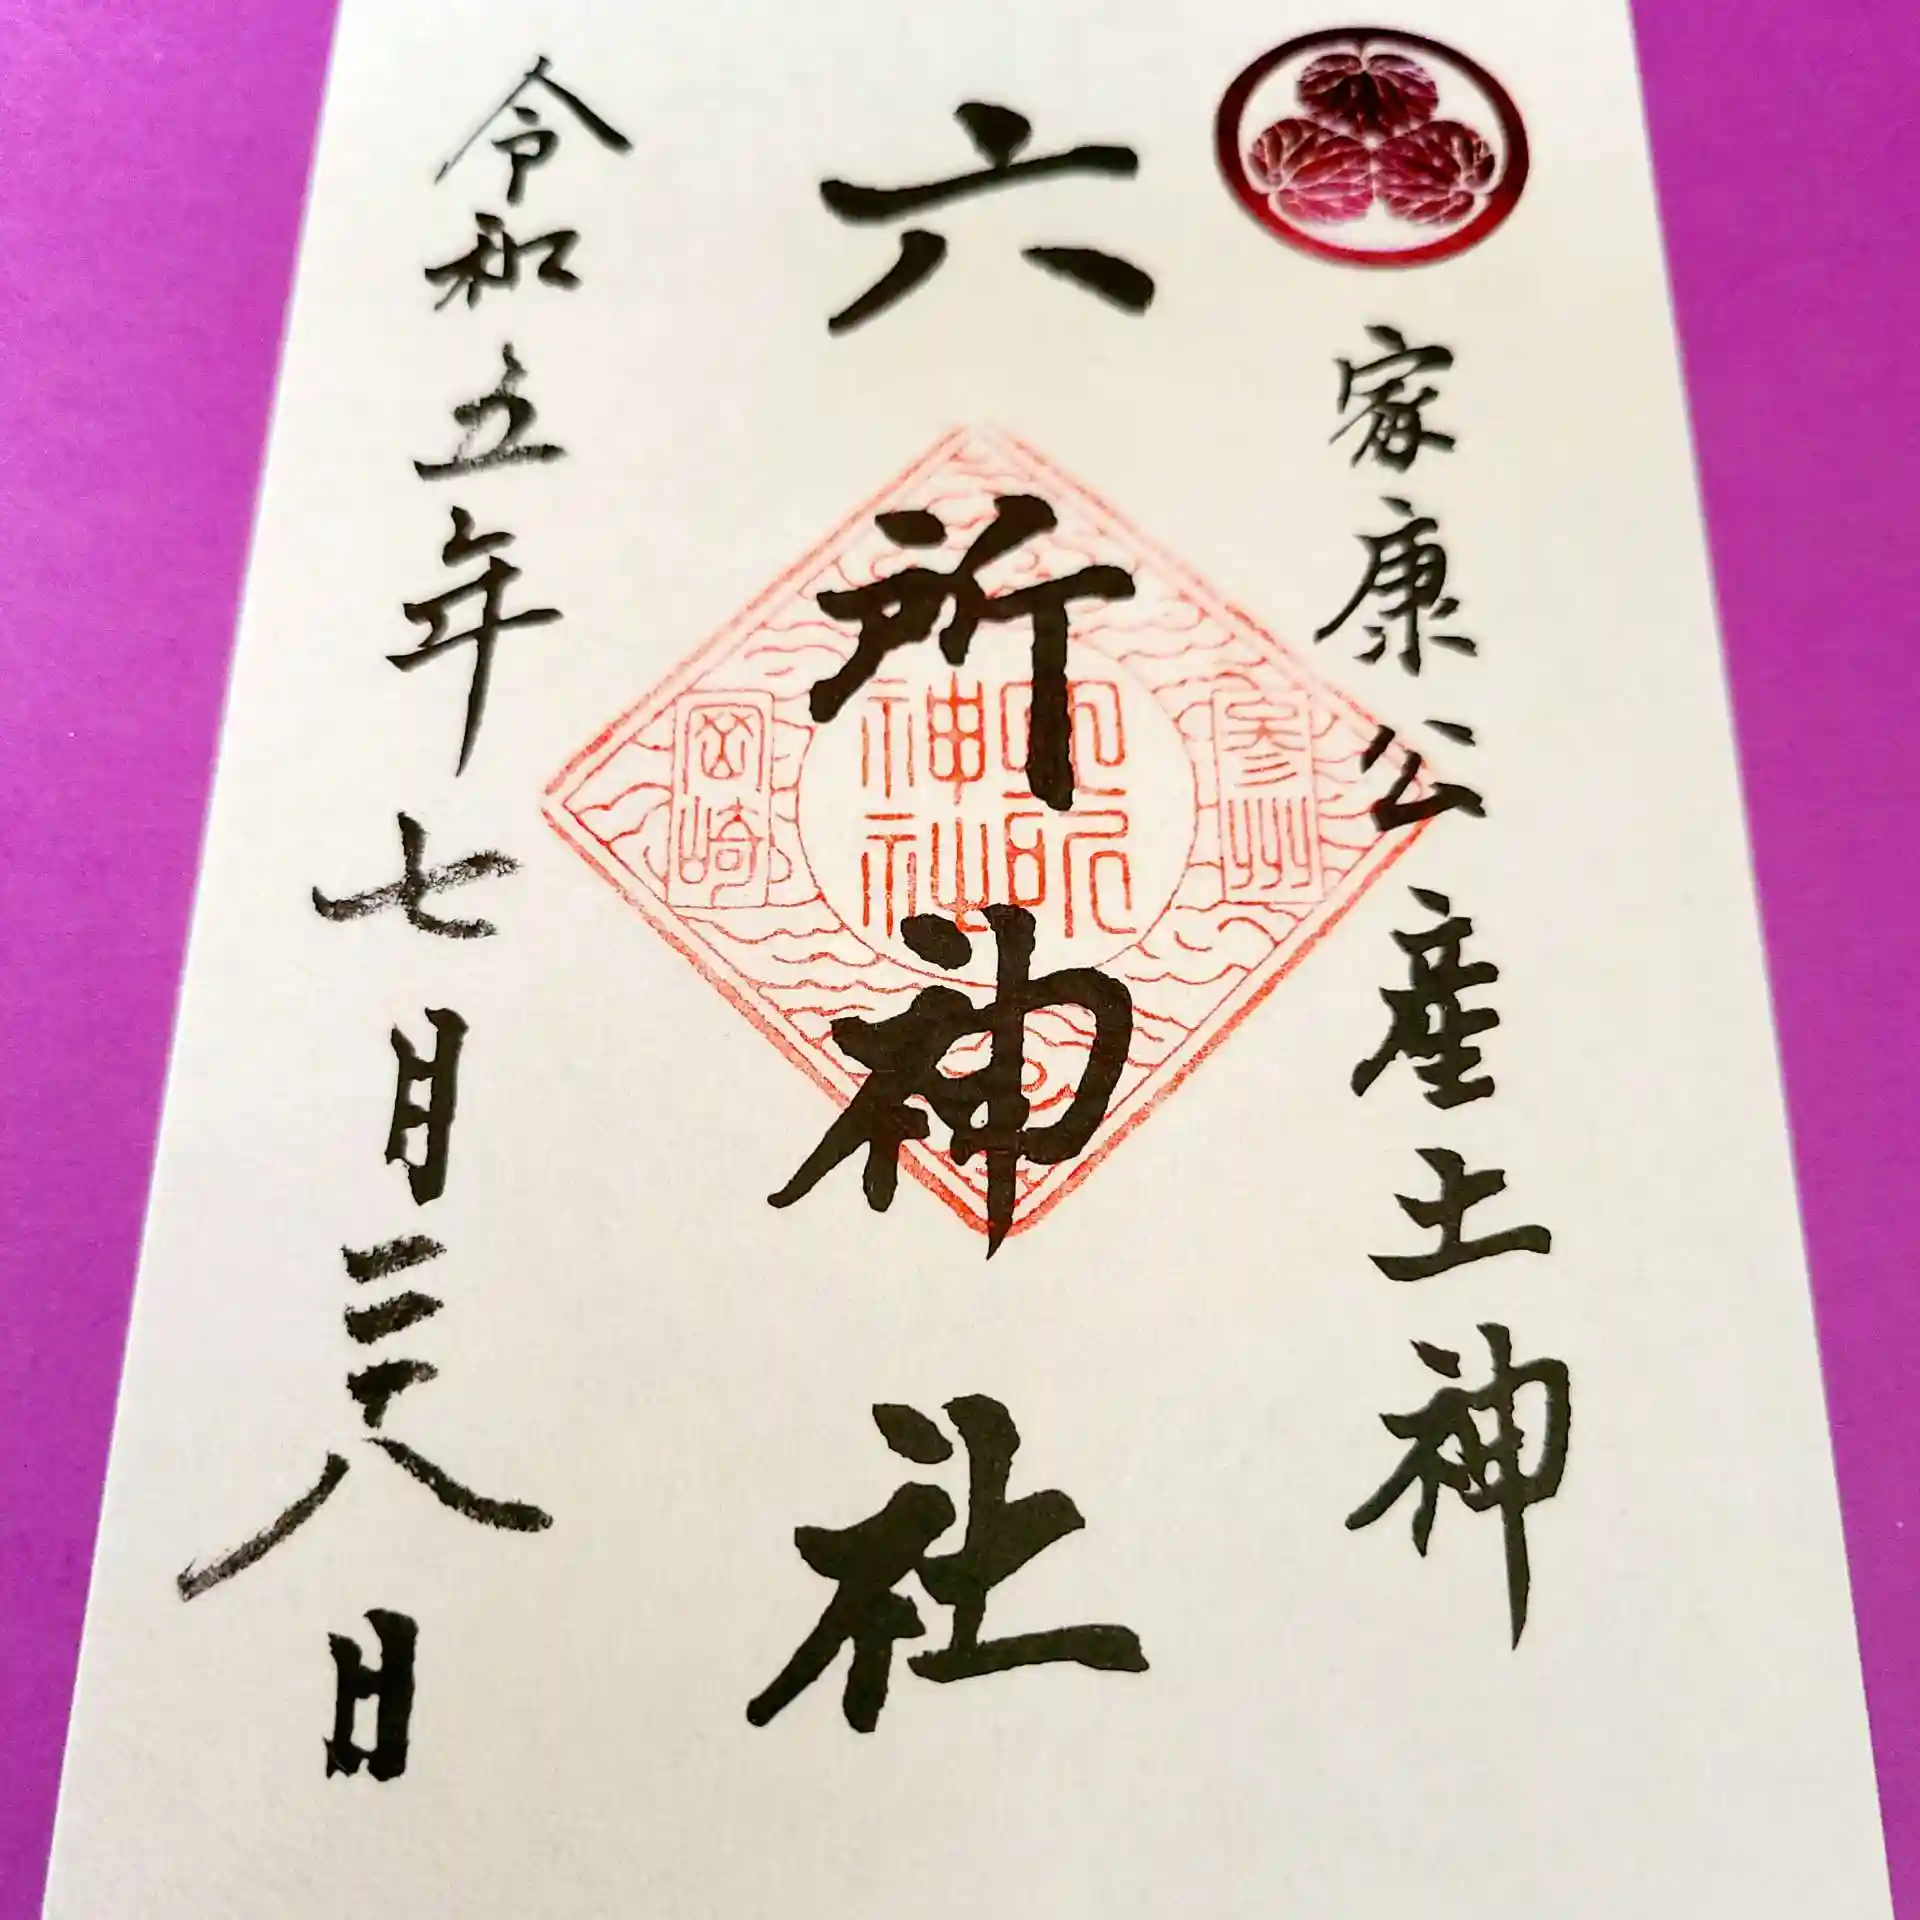 家康公産土神
六所神社
令和五年七月二十八日
參州
六所
神社
岡崎